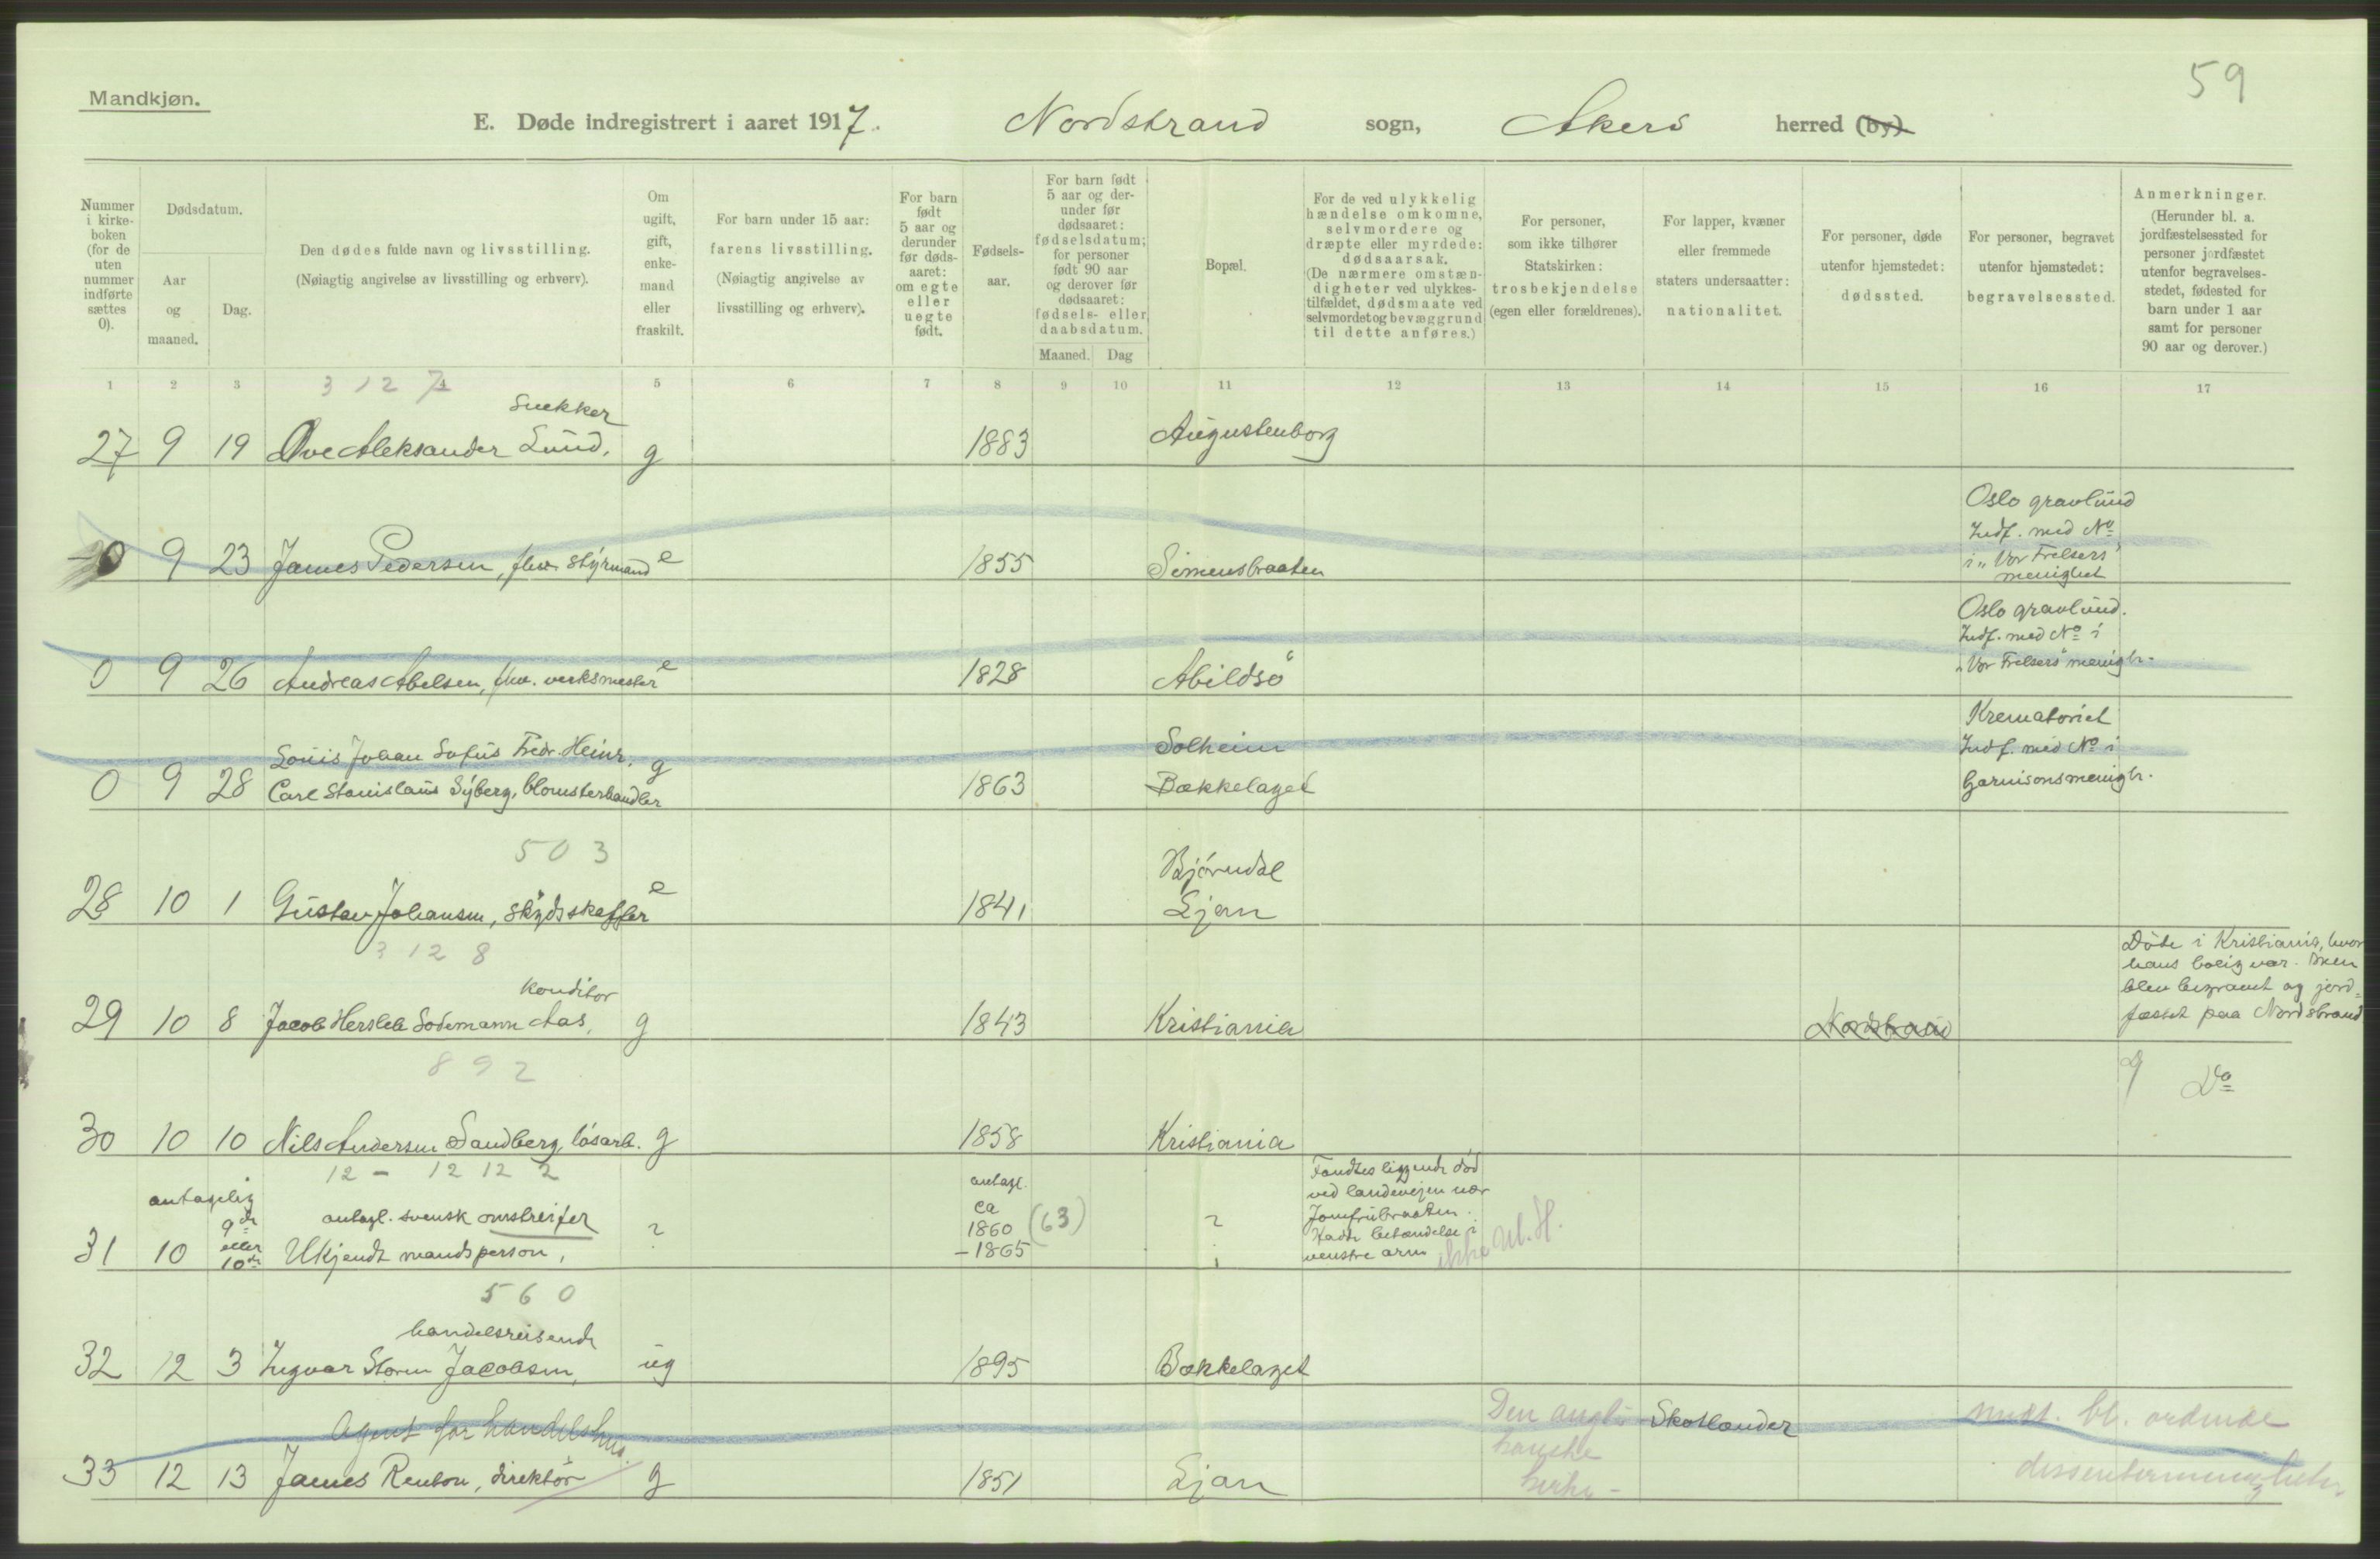 59
Mandkjøn.
E. Døde indregistrert i aaret 1917. Nordstrand sogn, Akers herred (by)
Nummer i kirkeboken (for de uten nummer indførte sættes 0).
Dødsdatum.
Aar og maaned.
Dag.
Den dødes fulde navn og livsstilling.
(Nøiagtig angivelse av livsstilling og erhverv).
Om ugift, gift, enkemand eller fraskilt.
For barn under 15 aar: farens livsstilling.
(Nøiagtig angivelse av livsstilling og erhverv).
For barn født 5 aar og derunder før dødsaaret: om egte eller uegte født.
Fødselsaar.
For barn født 5 aar og derunder før dødsaaret: fødselsdatum; for personer født 90 aar og derover før dødsaaret: fødsels- eller daabsdatum.
Maaned. Dag
Bopæl.
For de ved ulykkelig hændelse omkomne, selvmordere og dræpte eller myrdede: dødsaarsak.
(De nærmere omstændigheter ved ulykkestilfældet, dødsmaate ved selvmordet og bevæggrund til dette anføres.)
For personer, som ikke tilhører Statskirken: trosbekjendelse (egen eller forældrenes).
For lapper, kvæner eller fremmede staters undersaatter: nationalitet.
For personer, døde utenfor hjemstedet: dødssted.
For personer, begravet utenfor hjemstedet: begravelsessted.
Anmerkninger.
(Herunder bl. a. jordfæstelsessted for personer jordfæstet utenfor begravelsesstedet, fødested for barn under 1 aar samt for personer 90 aar og derover.)
1 2 3 5 6 7 8 9 10 11 12 13 14 15 16 17
3 12
27 9 19 Ove Aleksander Lund, g 1883 Augustenborg
Oslo gravlund
Indf. med No
i „Vor Frelsers"
menighet
0 9 23 James Pedersen, fhv. styrmand e 1855 Simensbraaten
Oslo gravlund.
Indf. med No i
„Vor Frelsers" menigh.
0 9 26 Andreas Abelsen, fhv. verksmester e 1828 Abildsø
Krematoriet
Indf. med No i
Garnisonsmenigh.
Louis Johan Sofus Fredr. Heinr. g Solheim
0 9 28 Carl Stanislaus Syberg, blomsterhandler 1863 Bækkelaget
503
Bjørndal
28 10 1 Gustav Johansen, skydsskaffer e 1841 Ljan
3128
Døde i Kristiania, hvor
hans bolig var. Men
blev begravet og jord-
fæstet paa Nordstrand
konditor
29 10 8 Jacob Hersleb Sodemann Aas, g 1843 Kristiania Nordstrand
892
Do
30 10 10 Nils Andersen Sandberg, løsarb. g 1858 Kristiania
12 - 12 12 2
antagelig
9de
eller
10de
antagl. svensk omstreifer
31 10 Ukjendt mandsperson, ?
antagl.
ca
1860 (63)
- 1865
?
Fandtes liggende død
ved landeveien nær
Jomfrubraaten.
Hadde betændelse i
venstre arm
ikke Ul. H.
560
handelsreisende
32 12 3 Ingvar Storm Jacobsen, ug 1895 Bækkelaget
Agent for handelshus.
33 12 13 James Renton, direktør g 1851 Ljan
Den angli-
kanske
kirke -
Skotlænder